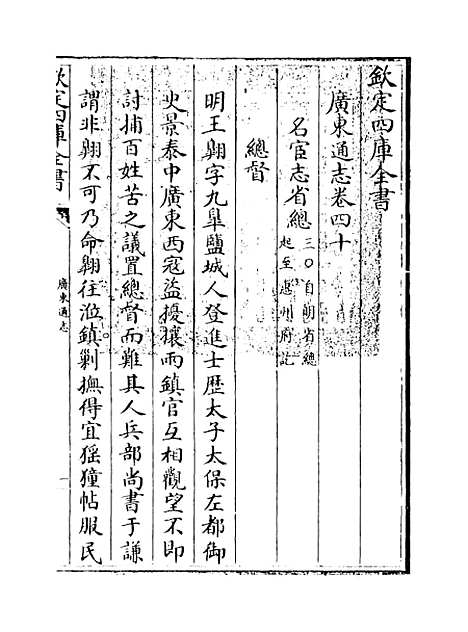 欽定四庫全書
廣東通志卷四十
名宦志省總三〇自明省總
起至惠州府訖
總督
明王翺字九臯鹽城人登進士歴太子太保左都御
史景泰中廣東西冦盗擾攘兩鎮官互相觀望不即
討捕百姓苦之議置總督而難其人兵部尚書于謙
謂非翺不可乃命翺往涖鎮剿撫得宜猺獞帖服民
欽定四庫全書
廣東通志
一